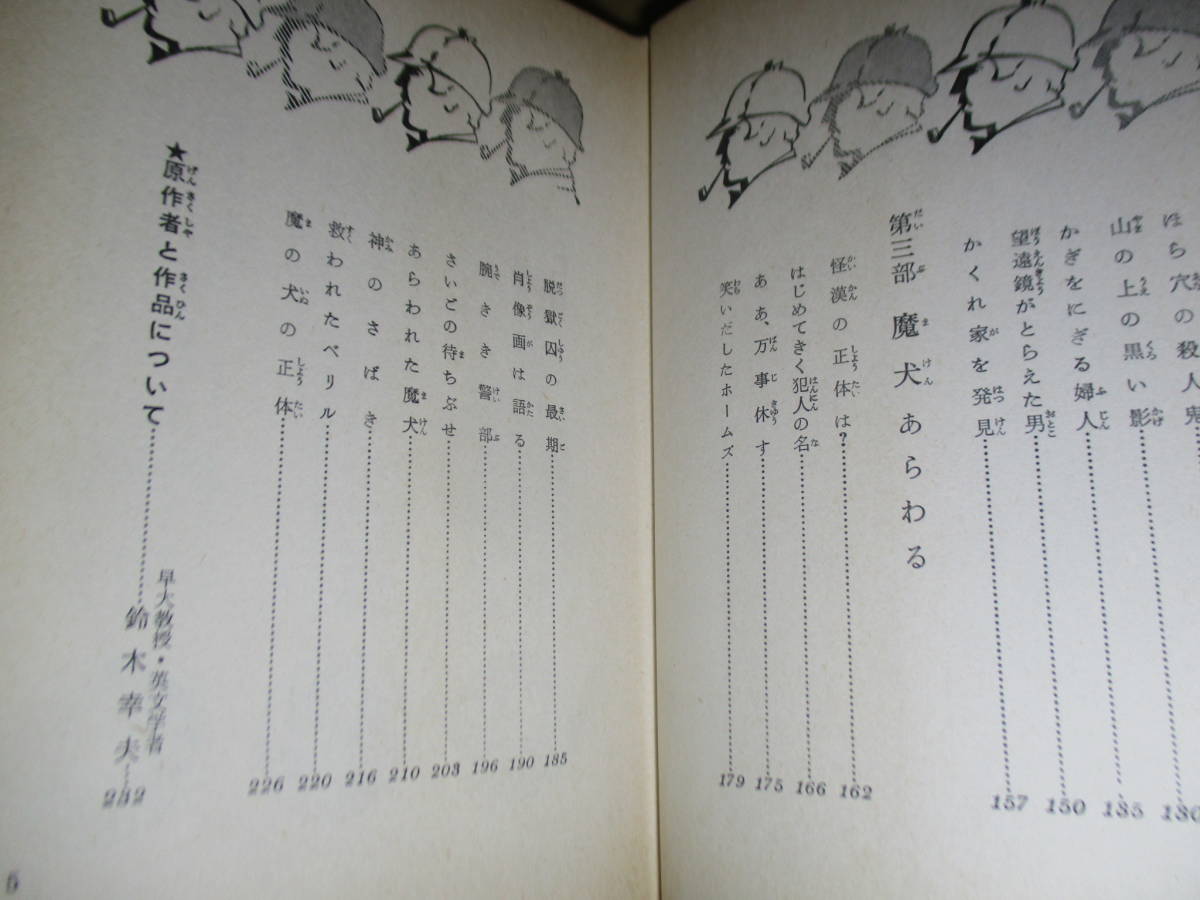 ほら穴の殺人鬼……130
山の上の黒い影……135
かぎをにぎる婦人……150
望遠鏡がとらえた男……157
かくれ家を発見
第三部 魔犬あらわる
怪漢の正体は？……162
はじめてきく犯人の名……166
ああ、万事休す……175
笑いだしたホームズ……179
脱獄囚の最期……185
肖像画は語る……190
腕きき警部……196
さいごの待ちぶせ……203
あらわれた魔犬……210
神のさばき……216
救われたベリル……220
魔の犬の正体……226
★原作者と作品について……
早大教授・英文学者
鈴木幸夫…232
5